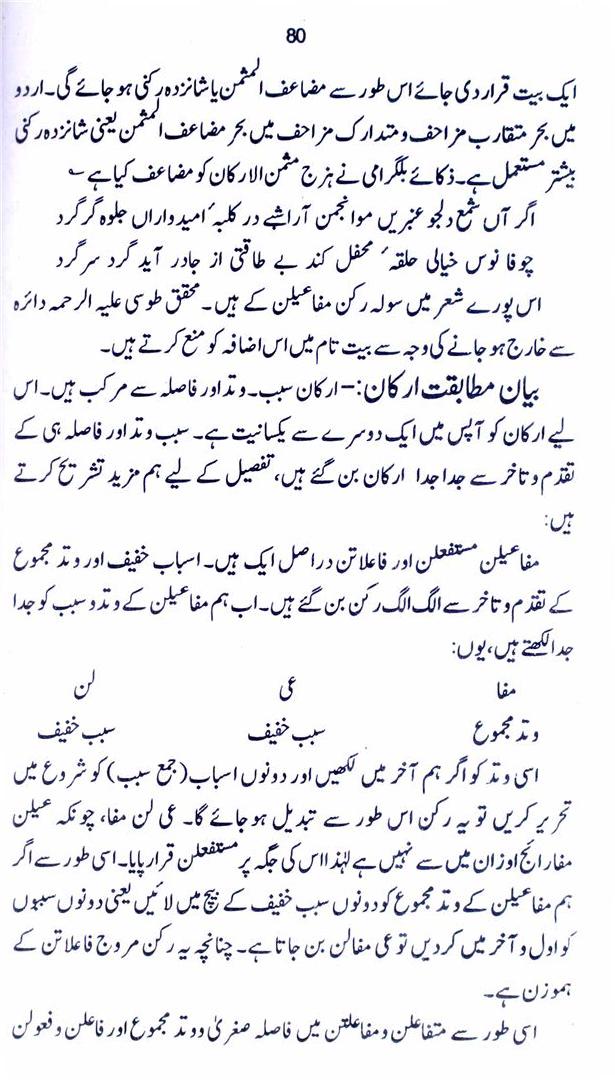 80
ایک بیت قرار دی جائے اس طور سے مضاعف المثمن یا شانزدہ رکنی ہو جائے گی۔ اردو
میں بحر متقارب مزاحف و متدارک مزاحف میں بحر مضاعف المثمن یعنی شانزدہ رکنی
بیشتر مستعمل ہے۔ ذکائے بلگرامی نے ہزج مثمن الارکان کو مضاعف کیا ہے ؎
اگر آں شمع دلجو عنبریں مو انجمن آرا شبے در کلبۂ امیدواراں جلوہ گر گردد
چو فانوس خیالی حلقۂ محفل کند بے طاقتی از جا در آید گرد سر گردد
اس پورے شعر میں سولہ رکن مفاعیلن کے ہیں۔ محقق طوسی علیہ الرحمہ دائرہ
سے خارج ہو جانے کی وجہ سے بیت تام میں اس اضافہ کو منع کرتے ہیں۔
بیان مطابقت ارکان:– ارکان سبب۔ وتد اور فاصلہ سے مرکب ہیں۔ اس
لیے ارکان کو آپس میں ایک دوسرے سے یکسانیت ہے۔ سبب وتد اور فاصلہ ہی کے
تقدم و تاخر سے جدا جدا ارکان بن گئے ہیں، تفصیل کے لیے ہم مزید تشریح کرتے
ہیں:
مفاعیلن مستفعلن اور فاعلاتن دراصل ایک ہیں۔ اسباب خفیف اور وتد مجموع
کے تقدم و تاخر سے الگ الگ رکن بن گئے ہیں۔ اب ہم مفاعیلن کے وتد و سبب کو جدا
جدا لکھتے ہیں، یوں:
مفا عی لن
وتد مجموع سبب خفیف سبب خفیف
اسی وتد کو اگر ہم آخر میں لکھیں اور دونوں اسباب (جمع سبب) کو شروع میں
تحریر کریں تو یہ رکن اس طور سے تبدیل ہو جائے گا۔ عی لن مفا، چونکہ عیلن
مفا رائج اوزان میں سے نہیں ہے لہٰذا اس کی جگہ پر مستفعلن قرار پایا۔ اسی طور سے اگر
ہم مفاعیلن کے وتد مجموع کو دونوں سبب خفیف کے بیچ میں لائیں یعنی دونوں سببوں
کو اول و آخر میں کر دیں تو عی مفالن بن جاتا ہے۔ چنانچہ یہ رکن مروج فاعلاتن کے
ہموزن ہے۔
اسی طور سے متفاعلن و مفاعلتن میں فاصلہ صغریٰ و وتد مجموع اور فاعلن و فعولن